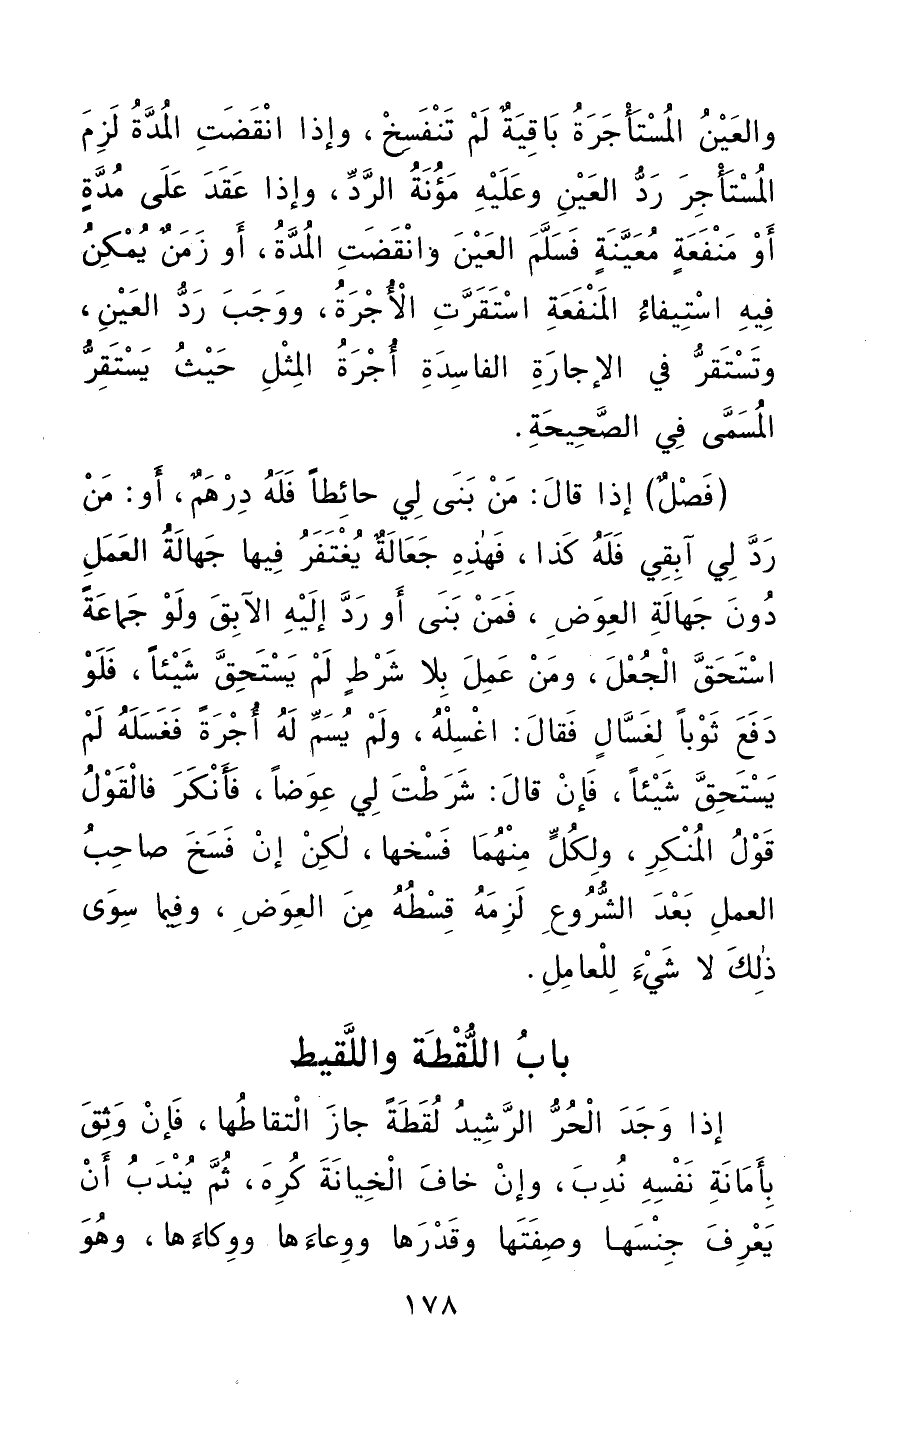 والعَيْنُ المُسْتَأْجَرَةُ بَاقِيَةٌ لَمْ تَنْفَسِخْ ، وإذا انْقَضَتِ المُدَّةُ لَزِمَ
المُسْتَأْجِرَ رَدُّ العَيْنِ وعَلَيْهِ مَؤُنَةُ الرَّدِّ ، وإذا عَقَدَ عَلَى مُدَّةٍ
أَوْ مَنْفَعَةٍ مُعَيَّنَةٍ فَسَلَّمَ العَيْنَ وَانْقَضَتِ المُدَّةُ ، أو زَمَنٌ يُمْكِنُ
فِيهِ اسْتِيفاءُ المَنْفَعَةِ اسْتَقَرَّتِ الْأُجْرَةُ ، ووَجَبَ رَدُّ العَيْنِ ،
وتَسْتَقرُّ في الإجارَةِ الفاسِدَةِ أُجْرَةُ المِثْلِ حَيْثُ يَسْتَقِرُّ
المُسَمَّى فِي الصَّحِيحَةِ .
(فَصْلٌ) إذا قالَ : مَنْ بَنَى لِي حائِطاً فَلَهُ دِرْهَمٌ ، أَو : مَنْ
رَدَّ لِي آبِقِي فَلَهُ كَذا ، فَهٰذِهِ جَعَالَةٌ يُغْتَفَرُ فِيها جَهالَةُ العَمَلِ
دُونَ جَهالَةِ العِوَضِ ، فَمَنْ بَنَى أو رَدَّ إلَيْهِ الآبِقَ ولَوْ جَماعَةً
اسْتَحَقَّ الْجُعْلَ ، ومَنْ عَمِلَ بِلا شَرْطٍ لَمْ يَسْتَحِقَّ شَيْئاً ، فَلَوْ
دَفَعَ ثَوْباً لِغَسَّالٍ فَقالَ : اغْسِلْهُ ، ولَمْ يُسَمِّ لَهُ أُجْرَةً فَغَسَلَهُ لَمْ
يَسْتَحِقَّ شَيْئاً ، فَإنْ قالَ : شَرَطْتَ لِي عِوَضاً ، فَأَنْكَرَ فالْقَوْلُ
قَوْلُ المُنْكِرِ ، ولِكُلٍّ مِنْهُمَا فَسْخها ، لٰكِنْ إنْ فَسَخَ صاحِبُ
العملِ بَعْدَ الشُّرُوعِ لَزِمَهُ قِسْطُهُ مِنَ العِوَضِ ، وفِيما سِوَى
ذٰلِكَ لا شَيْءَ لِلْعامِلِ .
بابُ اللُّقْطَة واللَّقيط
إذا وَجَدَ الْحُرُّ الرَّشِيدُ لُقَطَةً جازَ الْتقاطُها ، فَإنْ وَثِقَ
بِأَمَانَةِ نَفْسِهِ نُدِبَ ، وإنْ خافَ الْخِيانَةَ كُرِهَ ، ثُمَّ يُنْدَبُ أَنْ
يَعْرِفَ جِنْسَهـا وصِفَتَها وقَدْرَها ووِعاءَها ووِكاءَها ، وهُوَ
١٧٨